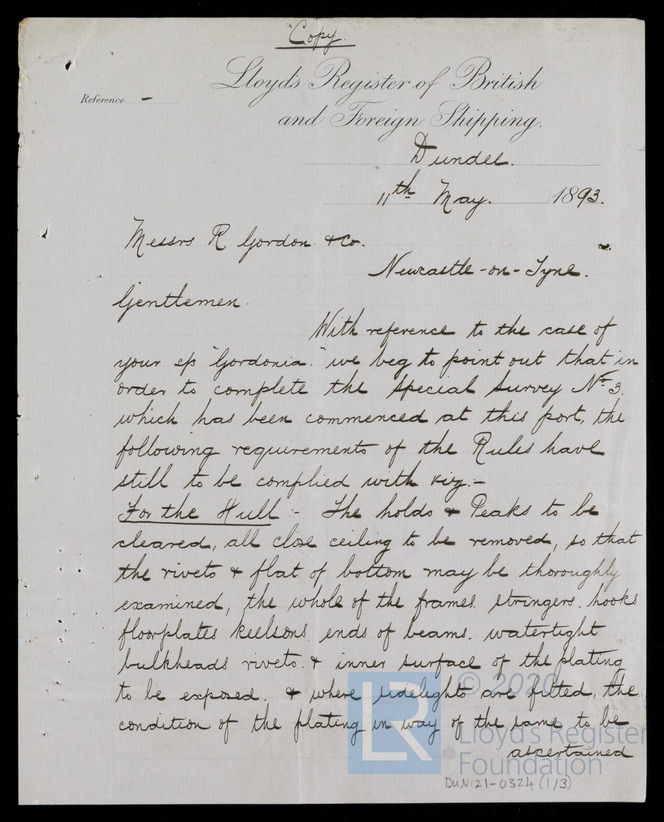 Copy.
Lloyd's Register of British
and Foreign Shipping.
Reference -
Dundee.
11th May. 1893.
Messrs R Gordon & Co.
Newcastle-on-Tyne.
Gentlemen.
With reference to the case of
your ss "Gordonia" we beg to point out that in
order to complete the special survey No 3.
which has been commenced at this port, the
following requirements of the Rules have
still to be complied with viz:-
For the Hull :- The holds & Peaks to be
cleared, all close ceiling to be removed, so that
the rivets & flat of bottom may be thoroughly
examined, the whole of the frames. stringers. hooks
floorplates keelsons. ends of beams. watertight
bulkheads rivets. & inner surface of the plating
to be exposed. & where sidelights are fitted, the
condition of the plating in way of the same to be
ascertained
LR
© 2020
Lloyd's Register
Foundation
DUN121-0324 (1/3)